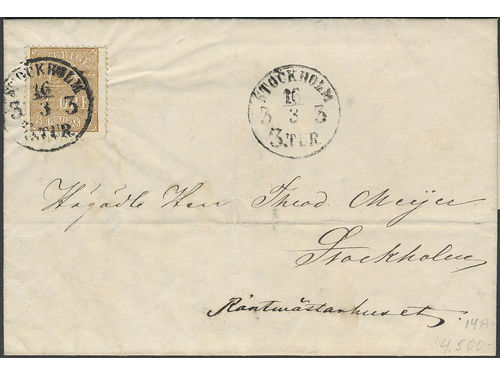 STOCKHOLM
16
3 3 3
3.TUR.
STOCKHOLM
16
3 3 3
3.TUR.
Högädle Herr Theod. Meijer
Stockholm
Räntmästarhuset
14A
4.500-